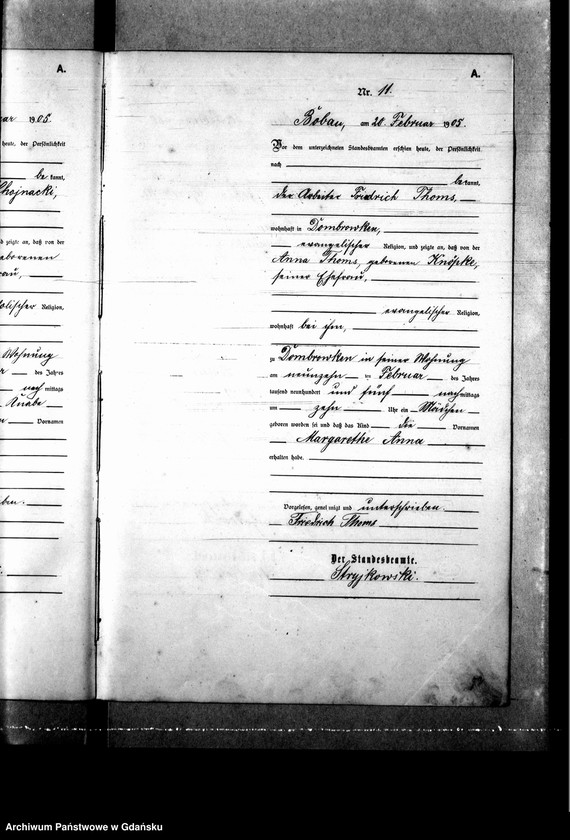 A.
uar 1905.
heute, der Persönlichkeit
be kannt,
Chojnacki,
d zeigte an, daß von der
eborenen
rau,
olischer Religion,
Wohnung
r des Jahres
nach mittags
Knabe
n Vornamen
ben.
A.
Nr. 11.
Bobau, am 20. Februar 1905.
Vor dem unterzeichneten Standesbeamten erschien heute, der Persönlichkeit
nach
be kannt,
der Arbeiter Friedrich Thoms,
wohnhaft in Dombrowken,
evangelischer Religion, und zeigte an, daß von der
Anna Thoms, geborenen Knöpke,
seiner Ehefrau,
evangelischer Religion,
wohnhaft bei ihm,
zu Dombrowken in seiner Wohnung
am neunzehn ten Februar des Jahres
tausend neunhundert und fünf nach mittags
um zehn Uhr ein Mädchen
geboren worden sei und daß das Kind die Vornamen
Margarethe Anna
erhalten habe.
Vorgelesen, genehmigt und unterschrieben
Friedrich Thoms
Der Standesbeamte.
Stryjkowski.
Archiwum Państwowe w Gdańsku